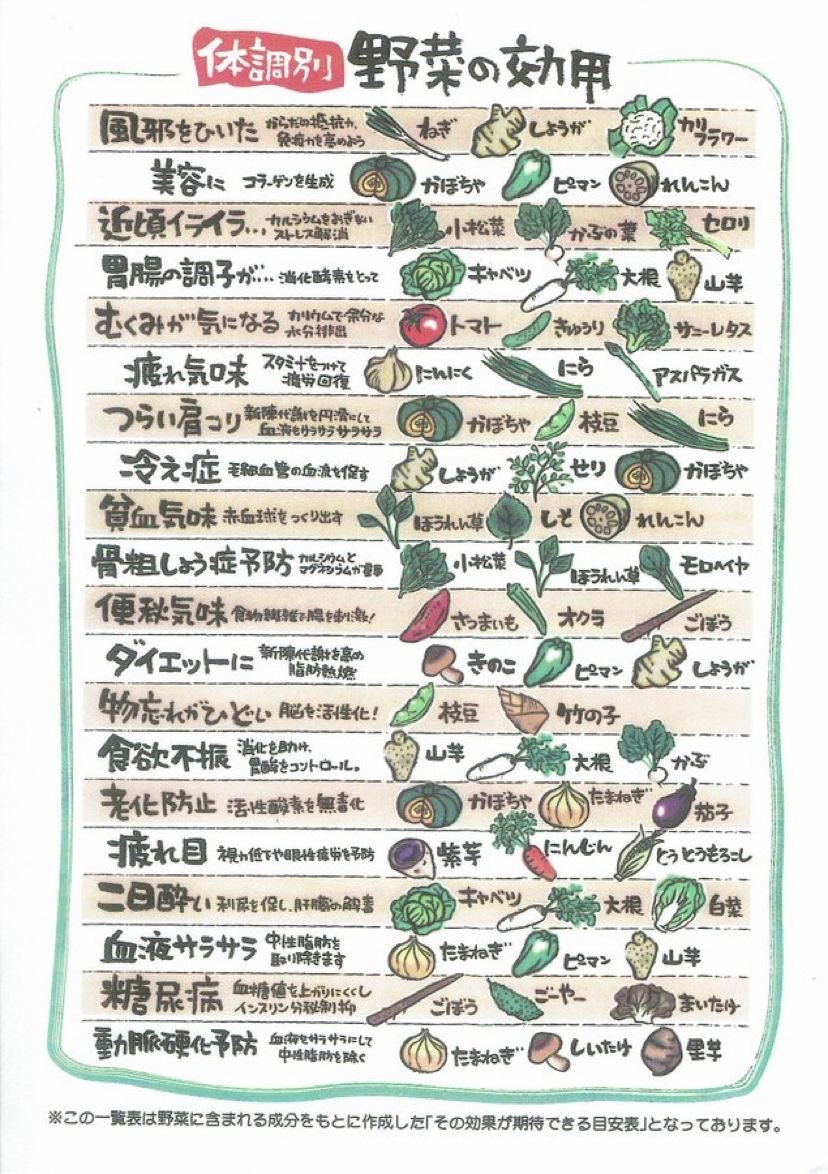 体調別 野菜の効用
風邪をひいた からだの抵抗力、免疫力を高めよう ねぎ しょうが カリフラワー
美容に コラーゲンを生成 かぼちゃ ピーマン れんこん
近頃イライラ… カルシウムをおぎないストレス解消 小松菜 かぶの葉 セロリ
胃腸の調子が… 消化酵素をとって キャベツ 大根 山芋
むくみが気になる カリウムで余分な水分排出 トマト きゅうり サニーレタス
疲れ気味 スタミナをつけて疲労回復 にんにく にら アスパラガス
つらい肩コリ 新陳代謝を円滑にして血液もサラサラサラサラ かぼちゃ 枝豆 にら
冷え症 毛細血管の血流を促す しょうが せり かぼちゃ
貧血気味 赤血球をつくり出す ほうれん草 しそ れんこん
骨粗しょう症予防 カルシウムとマグネシウムが豊富 小松菜 ほうれん草 モロヘイヤ
便秋気味 食物繊維で腸を刺激! さつまいも オクラ ごぼう
ダイエットに 新陳代謝を高め脂肪熱燃 きのこ ピーマン しょうが
物忘れがひどい 脳を活性化! 枝豆 竹の子
食欲不振 消化を助け、胃酸をコントロール。 山芋 大根 かぶ
老化防止 活性酸素を無毒化 かぼちゃ たまねぎ 茄子
疲れ目 視力低下や眼性疲労を予防 紫芋 にんじん とうとうもろこし
二日酔い 利尿を促し、肝臓の解毒 キャベツ 大根 白菜
血液サラサラ 中性脂肪を取り除きます たまねぎ ピーマン 山芋
糖尿病 血糖値を上がりにくくしインスリン分泌制抑 ごぼう ごーやー まいたけ
動脈硬化予防 血液をサラサラにして中性脂肪を除く たまねぎ しいたけ 里芋
※この一覧表は野菜に含まれる成分をもとに作成した「その効果が期待できる目安表」となっております。